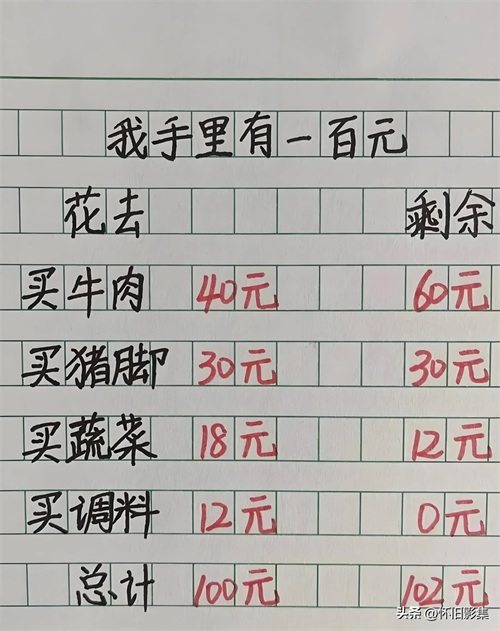 我手里有一百元
花去 剩余
买牛肉 40元 60元
买猪脚 30元 30元
买蔬菜 18元 12元
买调料 12元 0元
总计 100元 102元
头条 @怀旧影集